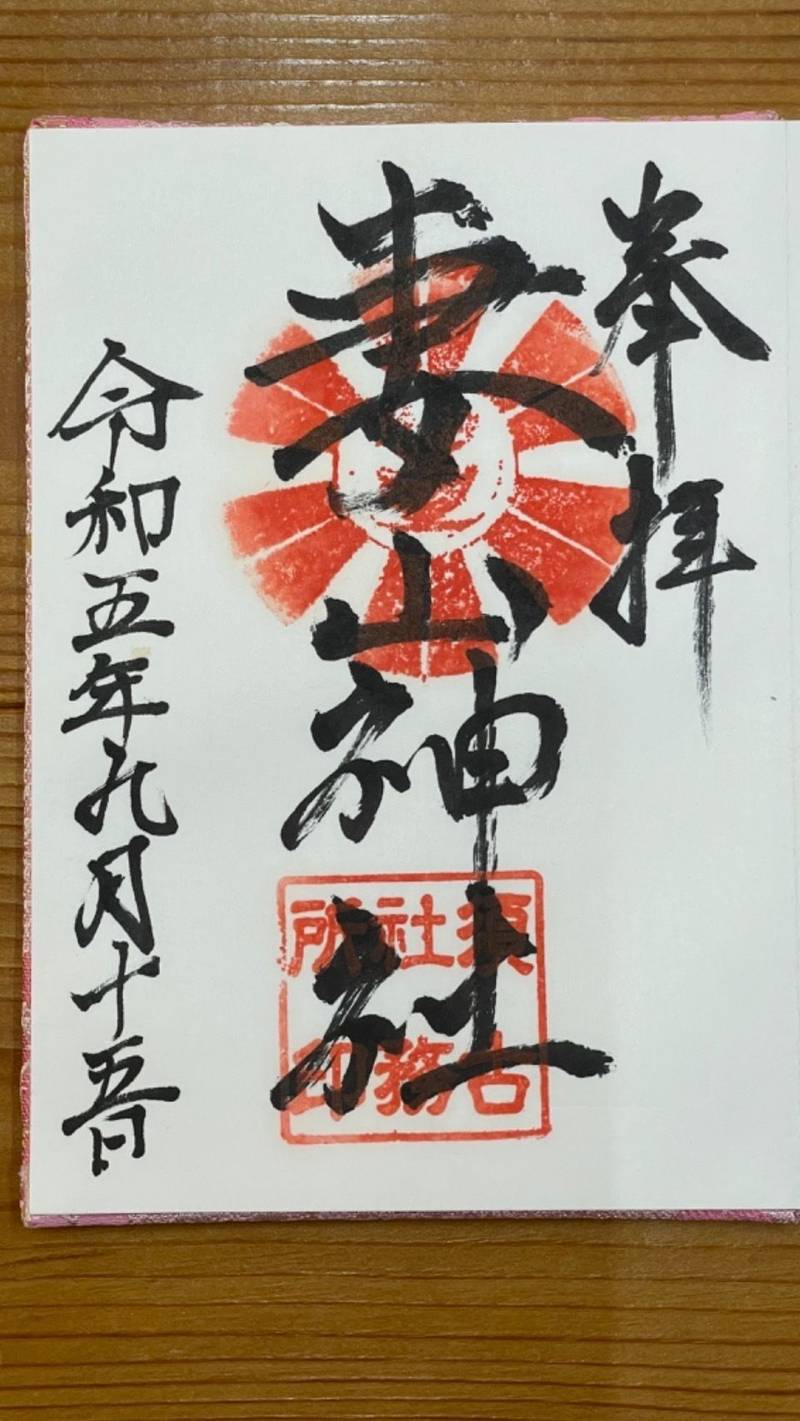 奉拝
妻山神社
須古
社務
所印
令和五年九月十五日